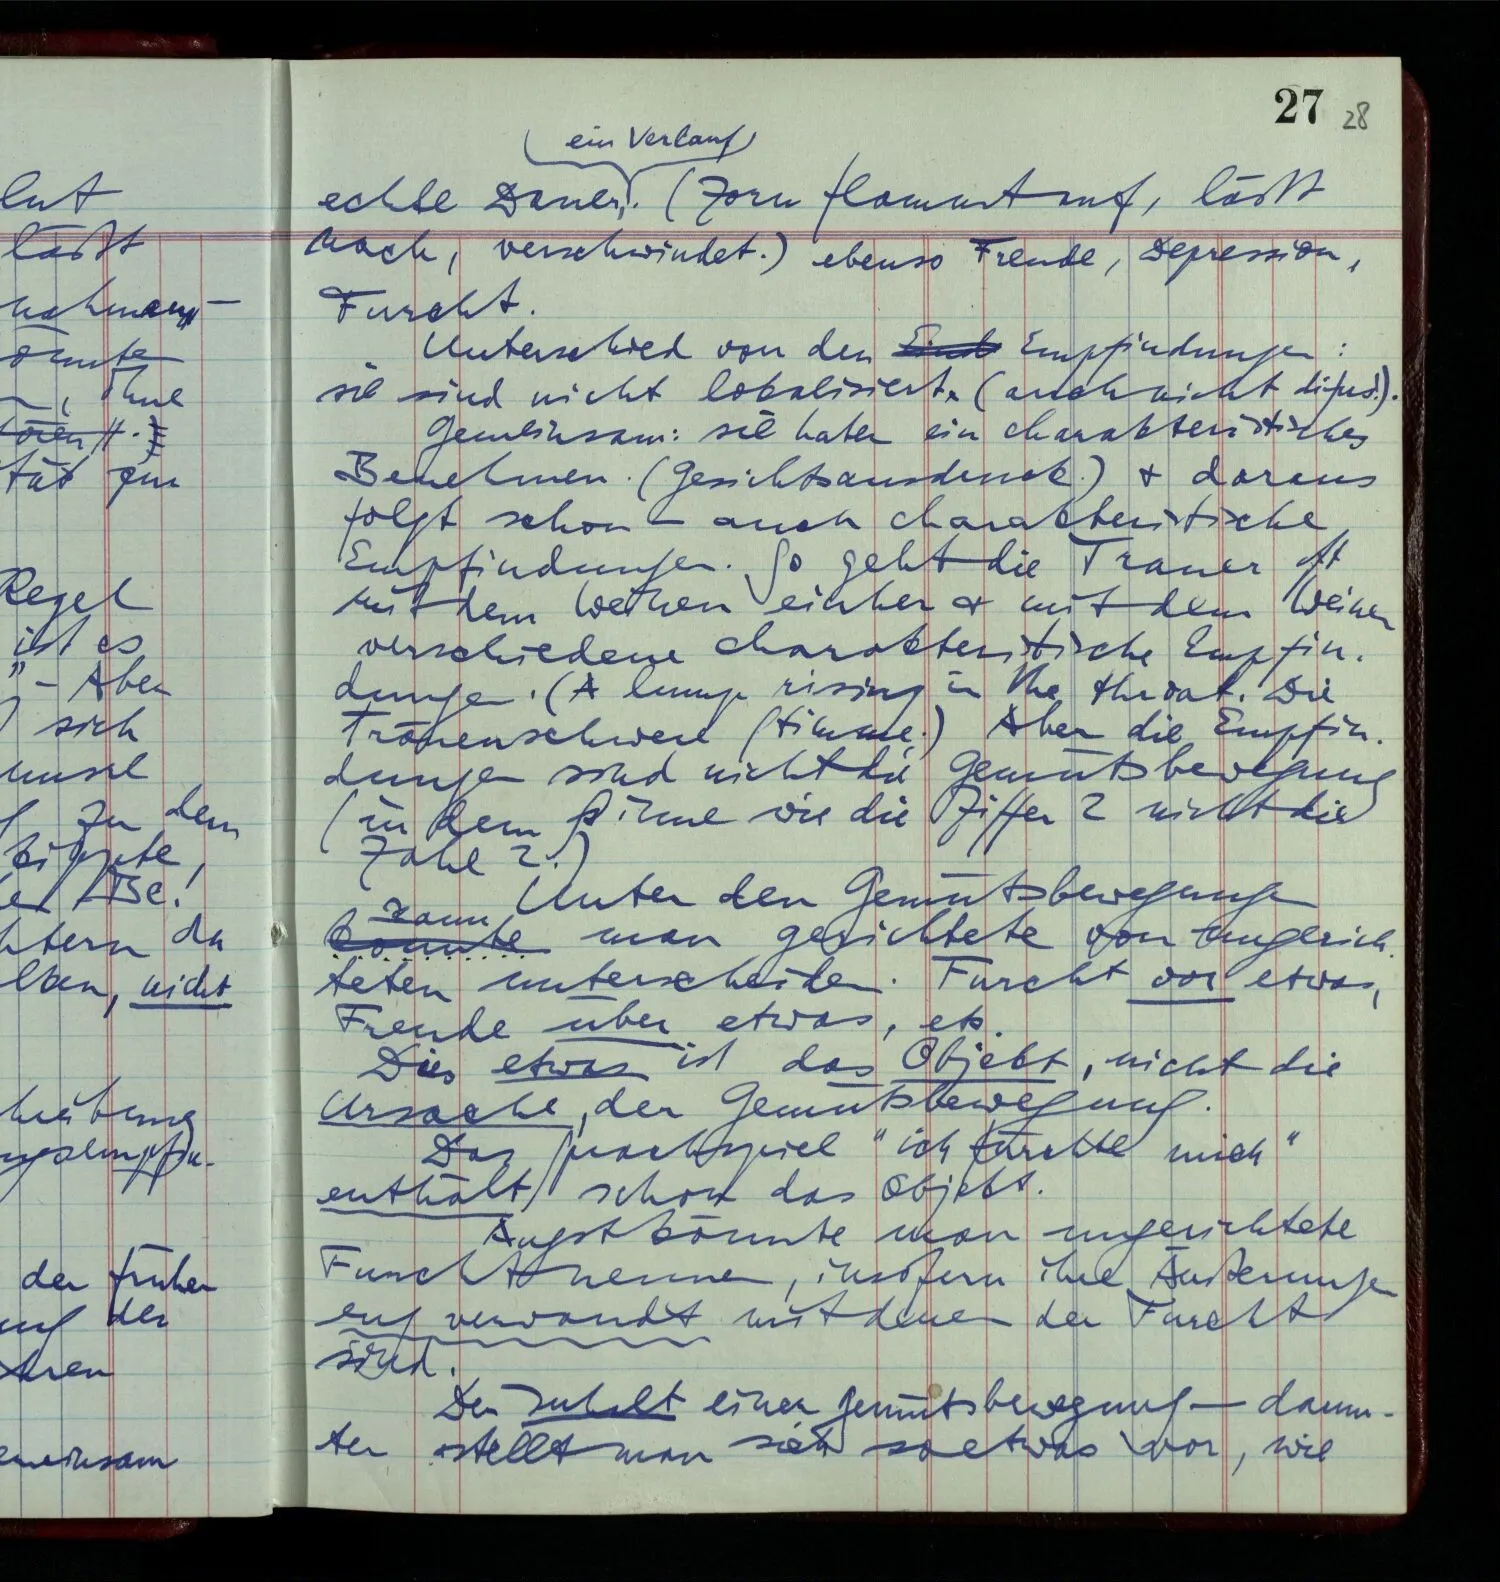 27 28
ein Verlauf
echte Dauer. (Zorn flammt auf, läßt
nach, verschwindet.) ebenso Freude, Depression,
Furcht.
Unterschied von den Empfindungen:
sie sind nicht lokalisiert. (auch nicht difus!).
Gemeinsam: sie haben ein charakteristisches
Benehmen. (Gesichtsausdruck.) + daraus
folgt schon – auch charakteristische
Empfindungen. So geht die Trauer oft
mit dem Weinen einher + mit dem Weinen
verschiedene charakteristische Empfin-
dungen. (A lump rising in the throat. Die
tränenschwere Stimme.) Aber die Empfin-
dungen sind nicht die Gemütsbewegung
(in dem Sinne wie die Ziffer 2 nicht die
Zahl 2.)
Unter den Gemütsbewegungen
kann
könnte man gerichtete von ungerich-
teten unterscheiden. Furcht vor etwas,
Freude über etwas, etc.
Dies etwas ist das Objekt, nicht die
Ursache, der Gemütsbewegung.
Das Sprachspiel "ich fürchte mich"
enthält schon das Objekt.
Angst könnte man ungerichtete
Furcht nennen, insofern ihre Äußerungen
eng verwandt mit denen der Furcht
sind.
Der Inhalt einer Gemütsbewegung – darun-
ter stellt man sich so etwas vor, wie
läßt
Regel
ist es
– Aber
sich
zu dem
nicht
der früher
der